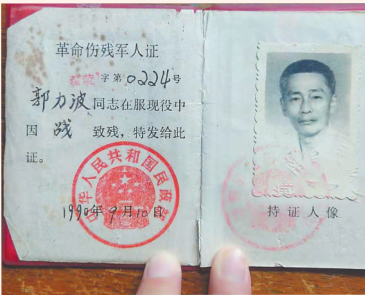 革命伤残军人证
字第0224号
郭力波同志在服现役中
因战致残,特发给此
证。
中华人民共和国民政部
1990年9月10日
持证人像